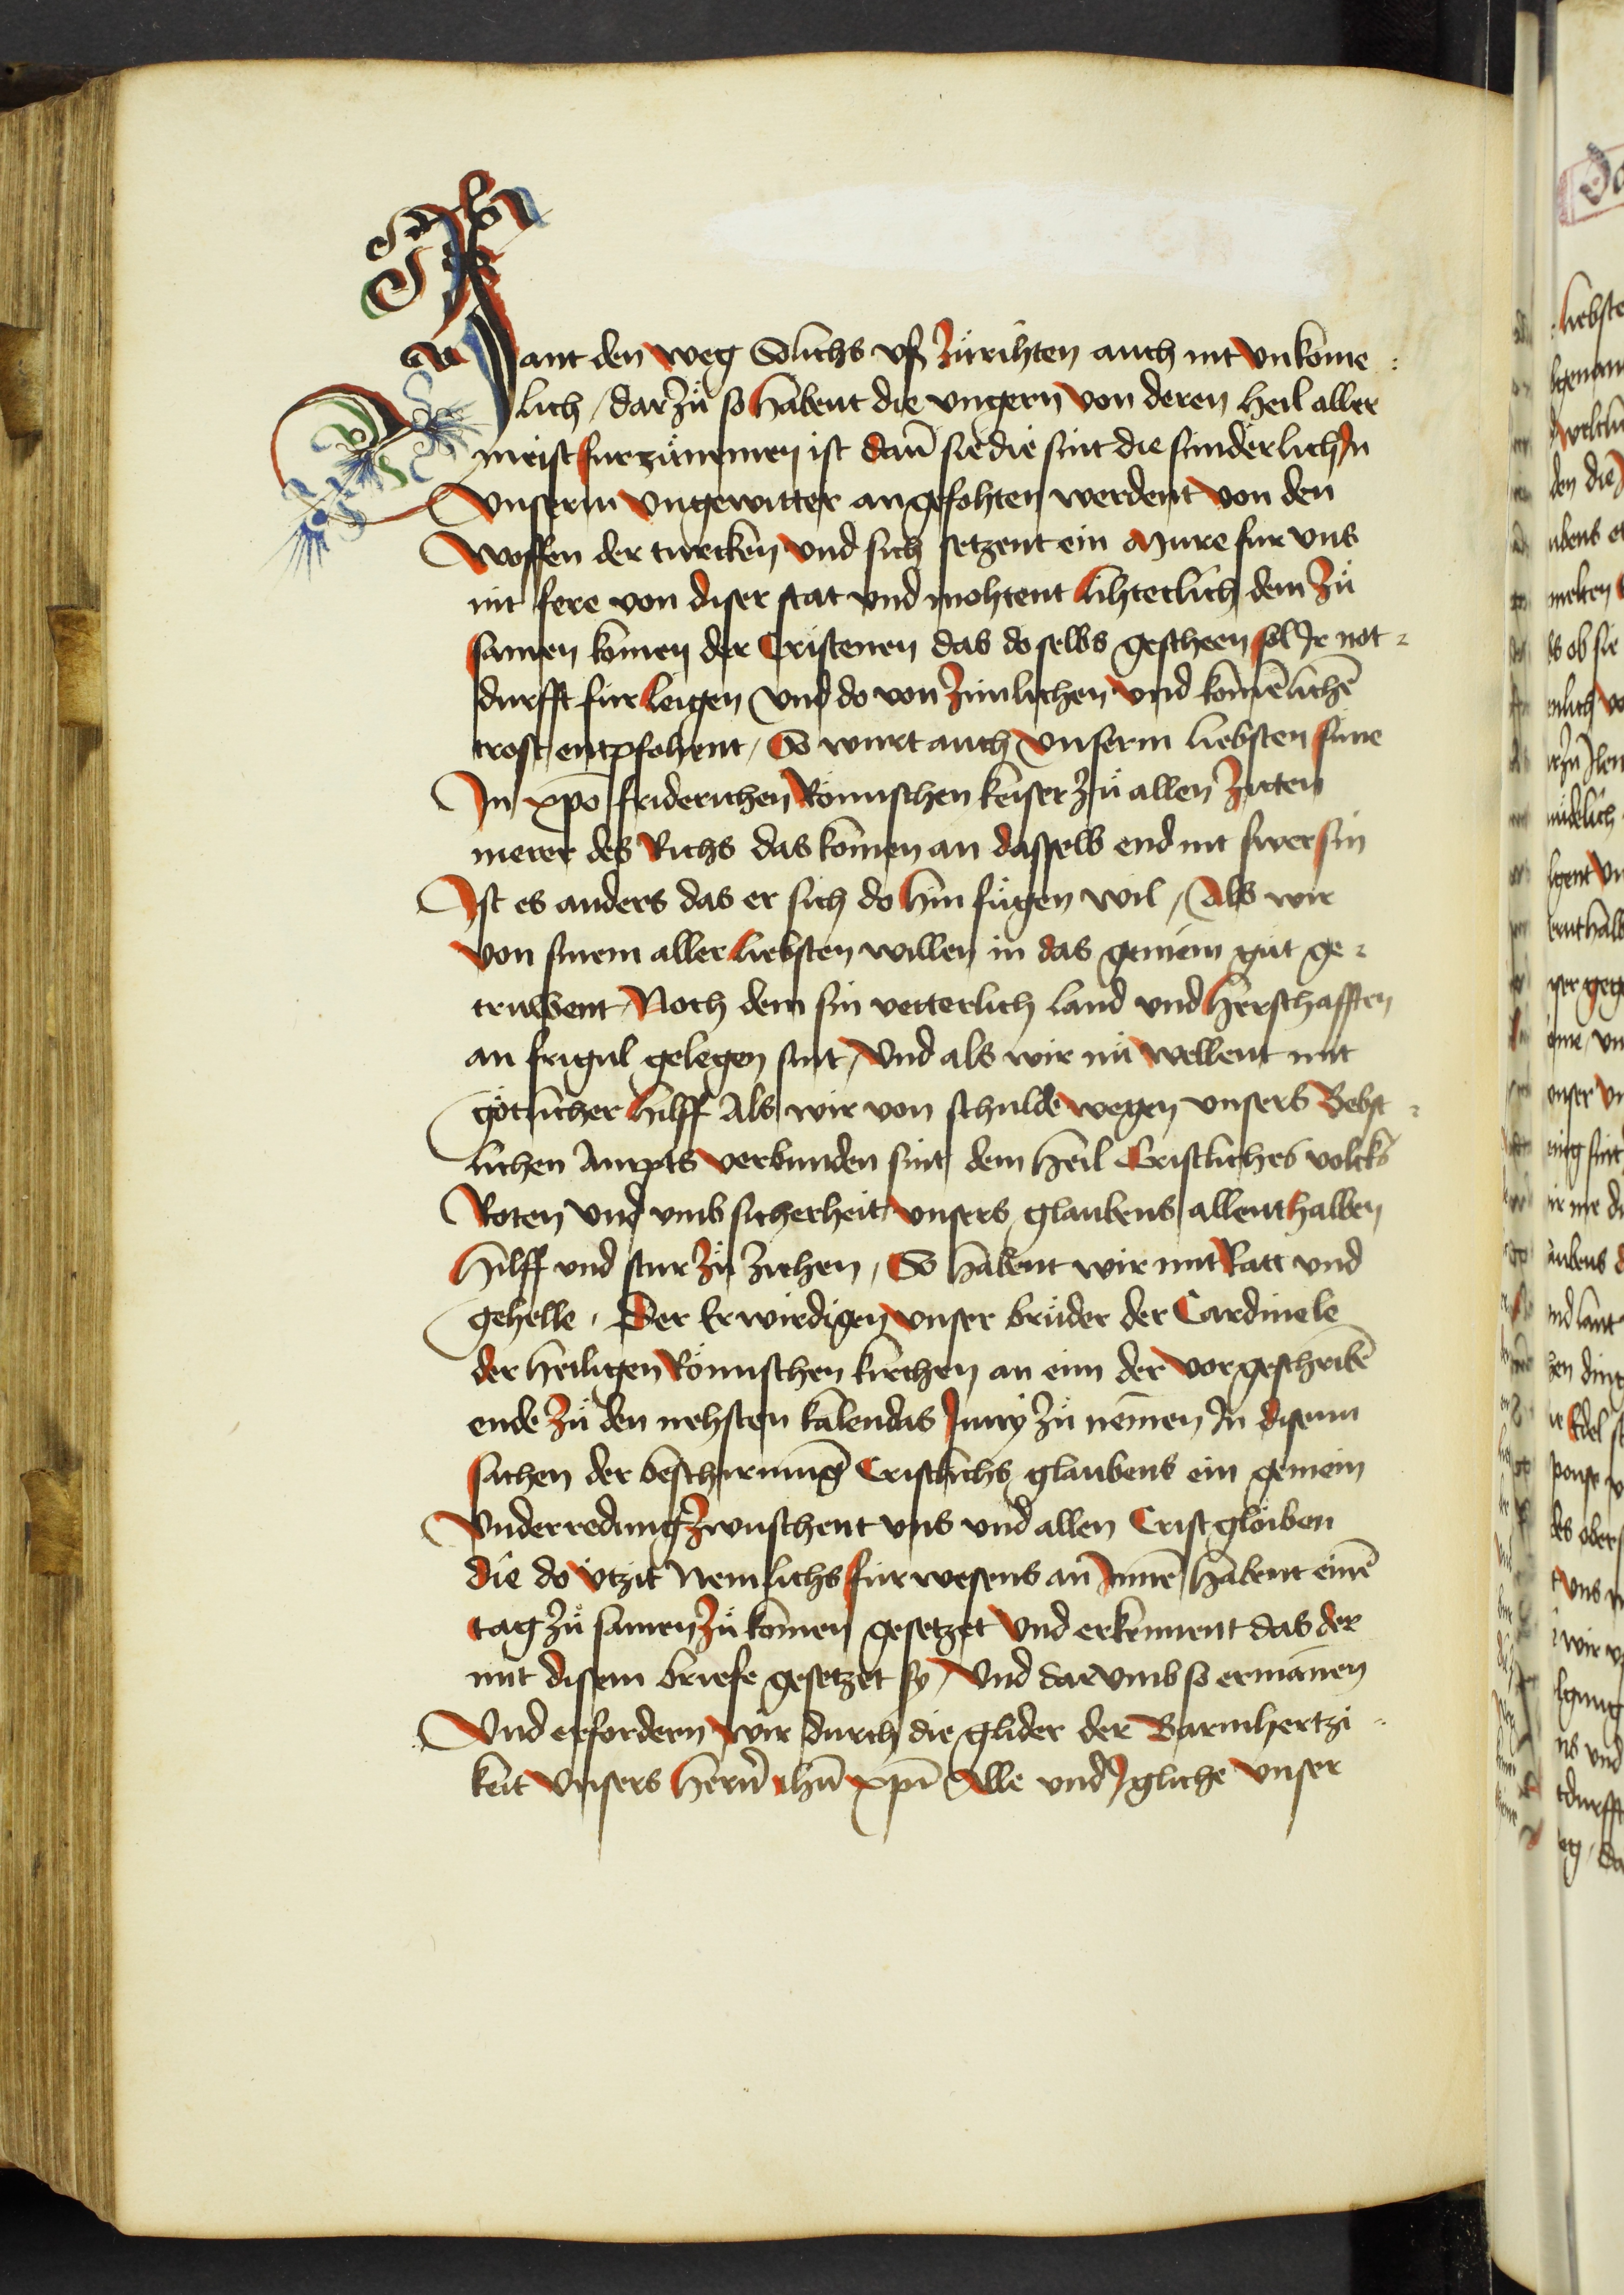 Jant den weg Sölichs vß zürihten auch nit vnköme
lich / dar zuͦ so habent die vngern von deren heil aller
meist fur zuͦnemen ist dañ sie die sint die sunderlich In
vnserm vngewitter angefohten werdent von den
woffen der turcken vnd sich setzent ein mure fur vns
nit fere von diser stat vnd mohtent lihteclich dem zuͦ
samen komen der Cristenen das do selbs gescheen sol Jr not
durfft fur leigen vnd do von zimlichen vnd komēlichē
trost entpfohent / So wurt auch vnserm liebsten sune
In xpo friderichen Römischen keiser zuͦ allen zitten
merer des Richs das komen an dasselb end nit swer sin
Ist es anders das er sich do hin fuͤgen wil / Als wir
von sinem aller liebsten willen in das gemein guͦt ge
truwent / Noch dem sin vetterlich land vnd herschafften
an frigul gelegen sint / Vnd als wir nuͦ wellent mit
götlicher hilff Als wir von schulde wegen vnsers Bebst
lichen Ampts verbunden sint dem heil Cristliches volcks
Roten vnd vmb sicherheit vnsers glaubens allenthalben
hilff vnd stur zuͦ ziehen / So habent wir mit Ratt vnd
gehelle / Der Erwirdigen vnser bruͤder der Cardinele
der heiligen Römischen kirchen an eim der vorgeschribē
ende zuͦ den nehsten kalendas Juny zuͦ nemen In disenn
sachen der beschirmung Cristlichs glaubens ein gemein
Vnderredung zwuschent vns vnd allen Crist glöiben
die do ytzit Nemlichs fur wesens an Innē habent einē
tag zuͦ samen zuͦ komen gesetzet vnd erkennent das der
mit disem briefe gesetzet sy / Vnd dar vmb so ermanen
Vnd erfordern wir durch die glider der Barmhertzi
keit vnsers herrē ihū xpi Alle vnd Jgliche vnser